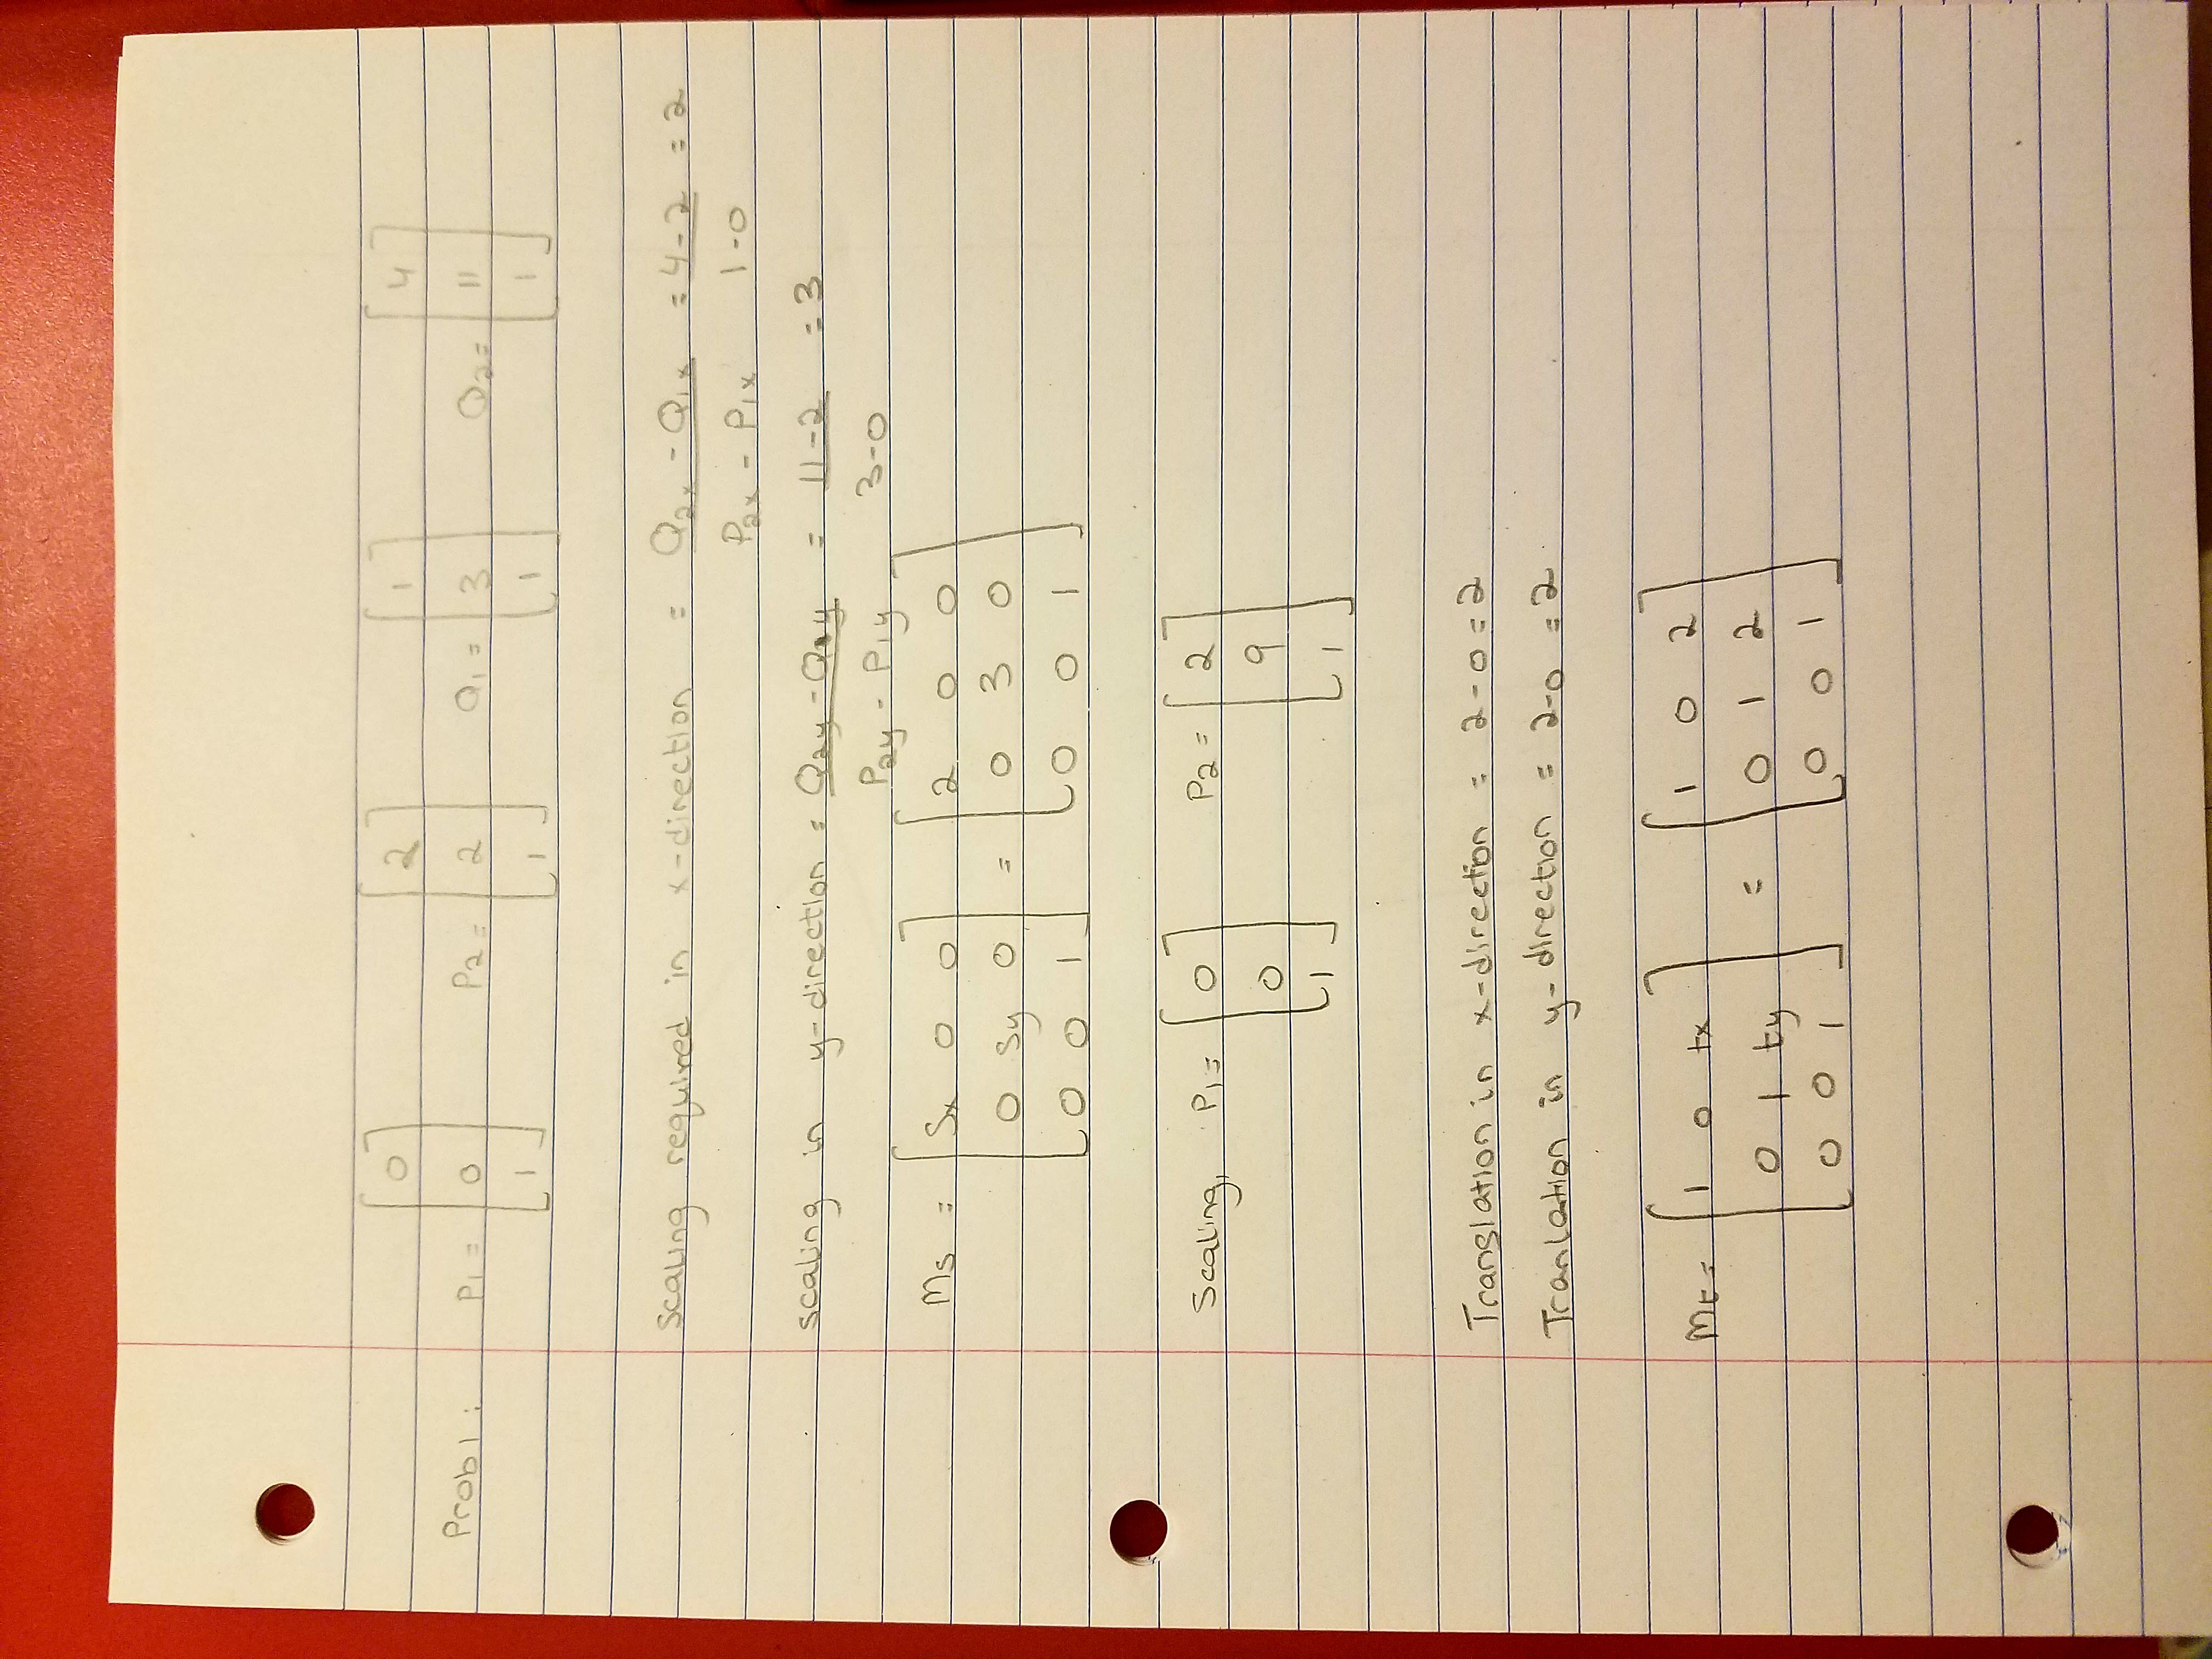 Prob 1: P1 = [0 0 1] P2 = [2 2 1] Q1 = [1 3 1] Q2 = [4 11 1]
Scaling required in x-direction = Q2x - Q1x / P2x - P1x = 4-2 / 1-0 = 2
scaling in y-direction = Q2y - Q1y / P2y - P1y = 11-2 / 3-0 = 3
Ms = [Sx 0 0
0 Sy 0
0 0 1] = [2 0 0
0 3 0
0 0 1]
Scaling, P1 = [0 0 1] P2 = [2 9 1]
Translation in x-direction = 2-0 = 2
Tranlation in y-direction = 2-0 = 2
Mt = [1 0 tx
0 1 ty
0 0 1] = [1 0 2
0 1 2
0 0 1]